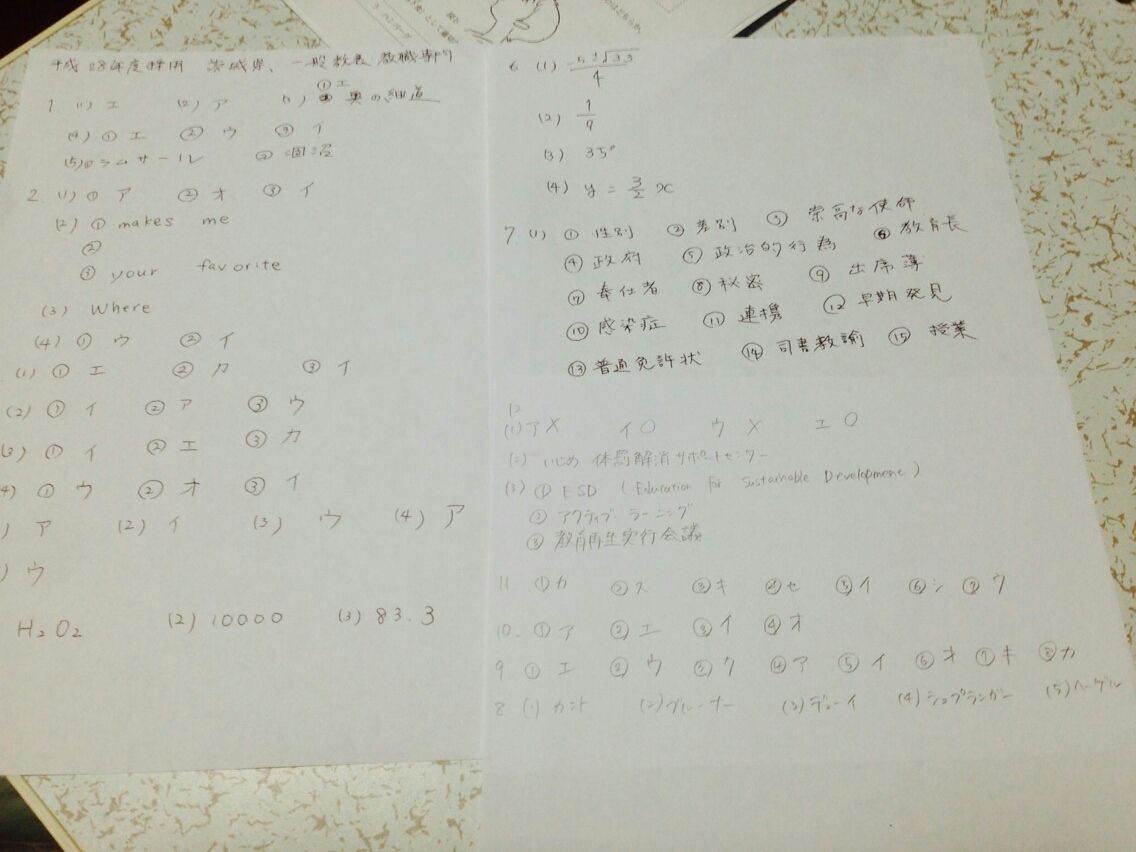 平成28年度採用 茨城県、一般教養 教職専門
1. (1) エ (2) ア (3) ①エ ② 奥の細道
(4) ① エ ② ウ ③ イ
(5)① ラムサール ② 涸沼
2. (1) ① ア ② オ ③ イ
(2) ① makes me
②
③ your favorite
(3) Where
(4) ① ウ ② イ
(1) ① エ ② カ ③ イ
(2) ① イ ② ア ③ ウ
(3) ① イ ② エ ③ カ
(4) ① ウ ② オ ③ イ
) ア (2) イ (3) ウ (4) ア
) ウ
H₂O₂ (2) 10000 (3) 83.3
6 (1) -5±√33/4
(2) 1/9
(3) 35°
(4) y = 3/2 x
7. (1) ① 性別 ② 差別 ③ 崇高な使命
④ 政府 ⑤ 政治的行為 ⑥ 教育長
⑦ 奉仕者 ⑧ 秘密 ⑨ 出席簿
⑩ 感染症 ⑪ 連携 ⑫ 早期発見
⑬ 普通免許状 ⑭ 司書教諭 ⑮ 授業
12
(1) ア × イ ○ ウ × エ ○
(2) いじめ 体罰解消サポートセンター
(3) ① ESD (Education for Sustainable Development)
② アクティブ・ラーニング
③ 教育再生実行会議
11 ① カ ② ス ③ キ ④ セ ⑤ イ ⑥ シ ⑦ ウ
10. ① ア ② エ ③ イ ④ オ
9 ① エ ② ウ ③ ク ④ ア ⑤ イ ⑥ オ ⑦ キ ⑧ カ
8 (1) カント (2) ブルーナー (3) デューイ (4) シュプランガー (5) ヘーゲル